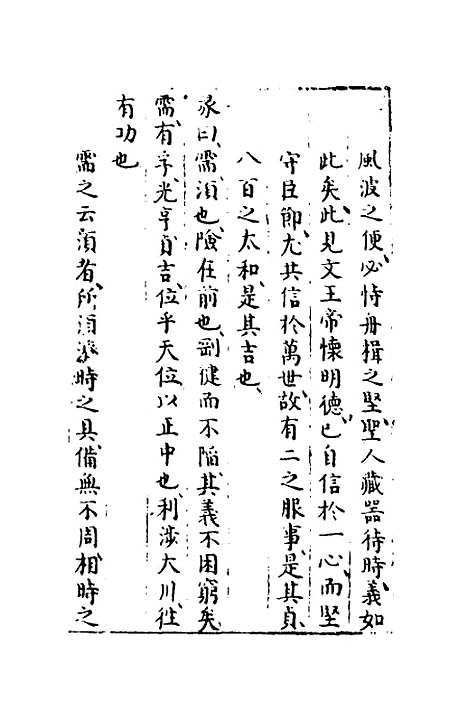 風波之便必恃舟楫之堅聖人藏器待時義如
此矣此見文王帝懷明德已自信於一心而堅
守臣節尤共信於萬世故有二之服事是其貞
八百之太和是其吉也
彖曰需湏也險在前也剛健而不陷其義不困窮矣
需有孚光亨貞吉位乎天位以正中也利涉大川徃
有功也
需之云湏者所湏濟時之具備無不周相時之